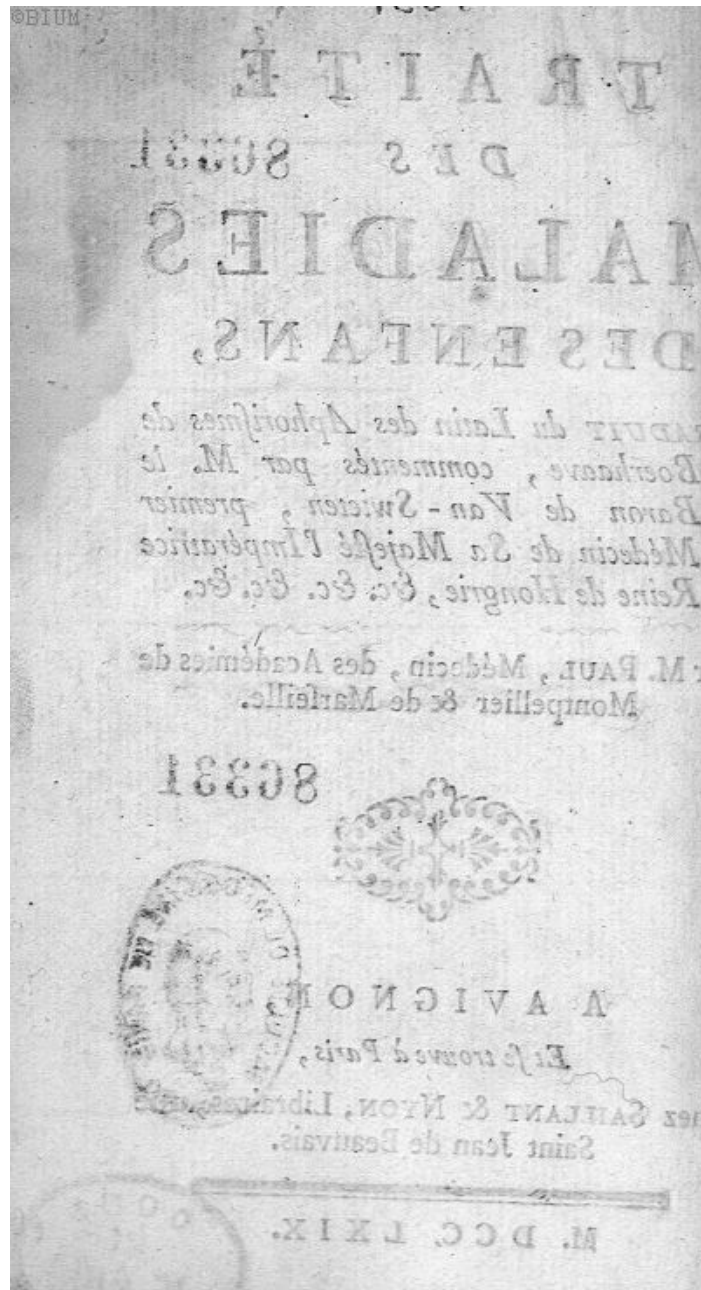 ©BIUM
TRAITÉ
DES 86331
MALADIES
DES ENFANS,
TRADUIT du Latin des Aphoriſmes de
Boerhaave, commentés par M. le
Baron de Van-Swieten, premier
Médecin de Sa Majeſté l'Impératrice
Reine de Hongrie, &c. &c. &c. &c.
M. PAUL, Médecin, des Académies de
Montpellier & de Marſeille.
86331
A AVIGNON,
Et ſe trouve à Paris,
SAILLANT & NYON, Libraires,
Saint Jean de Beauvais.
M. DCC. LXIX.